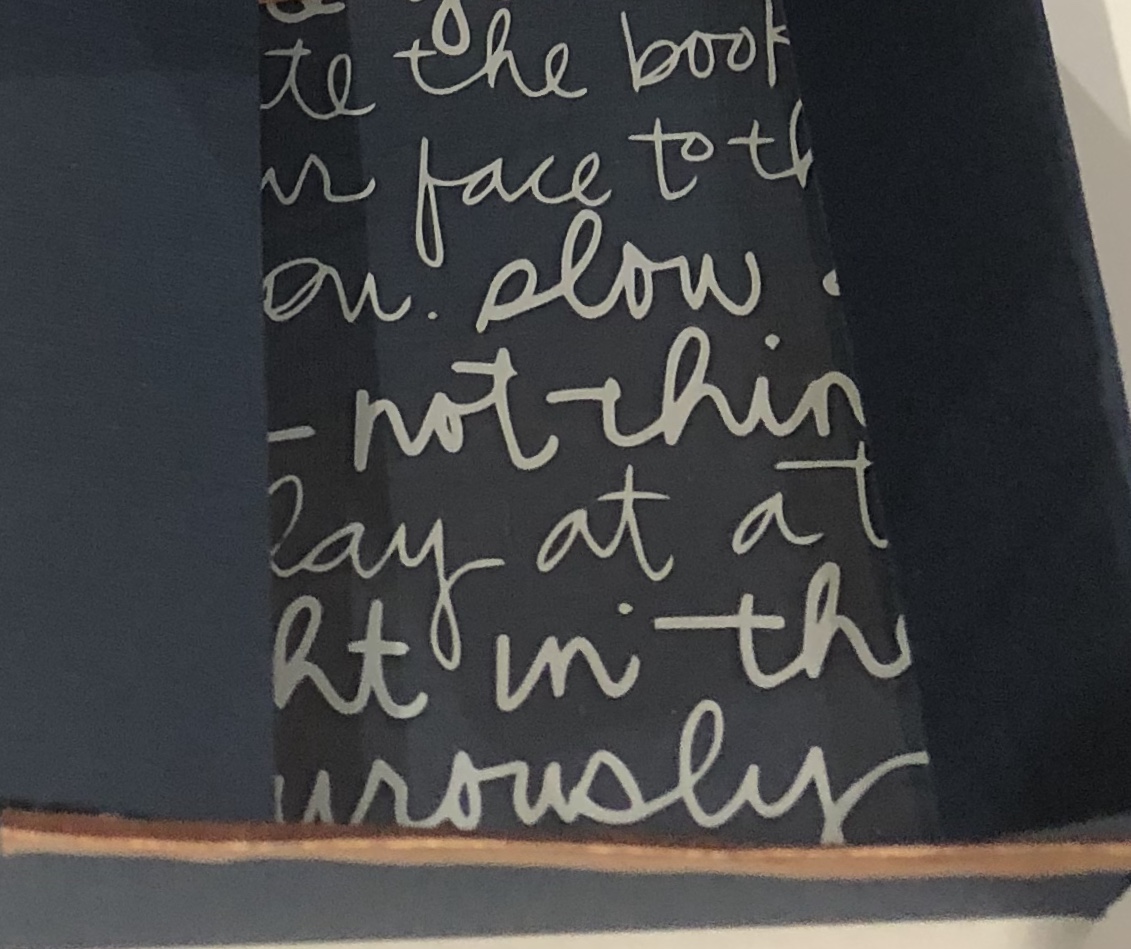 te the book
ur face to th
on. slow
- not thin
lay at a t
ht in th
urously